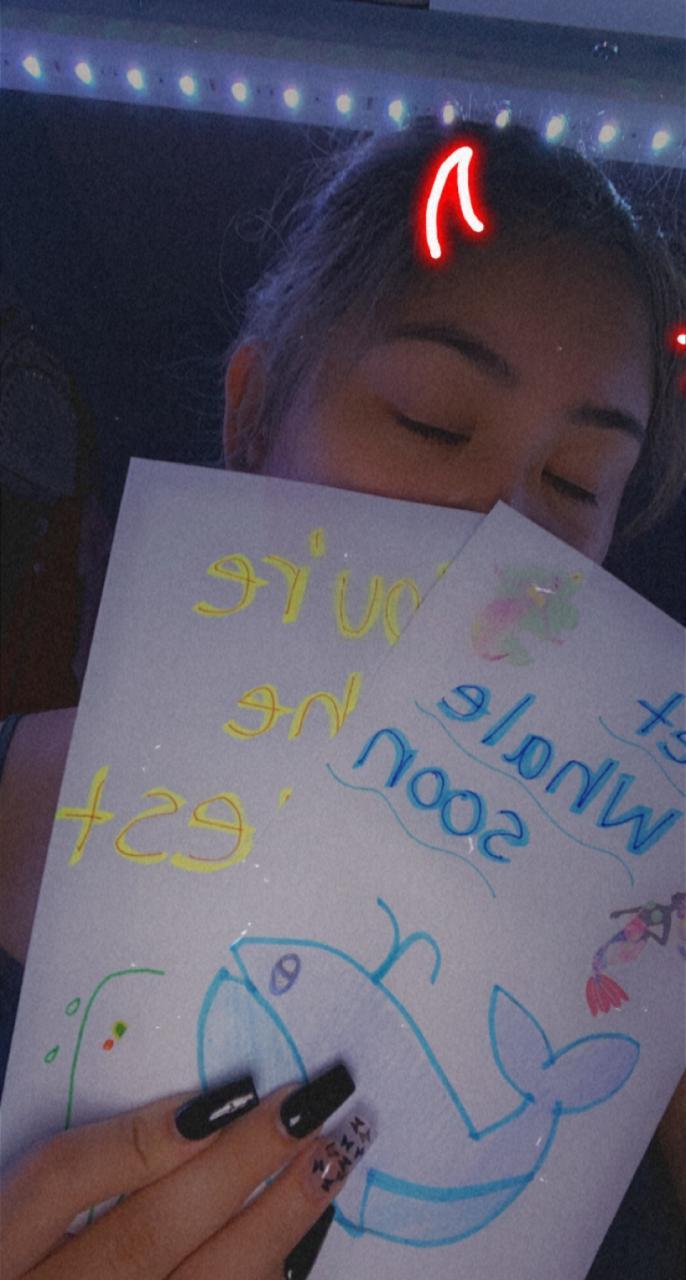 ou're
he
est
et
Whale
soon